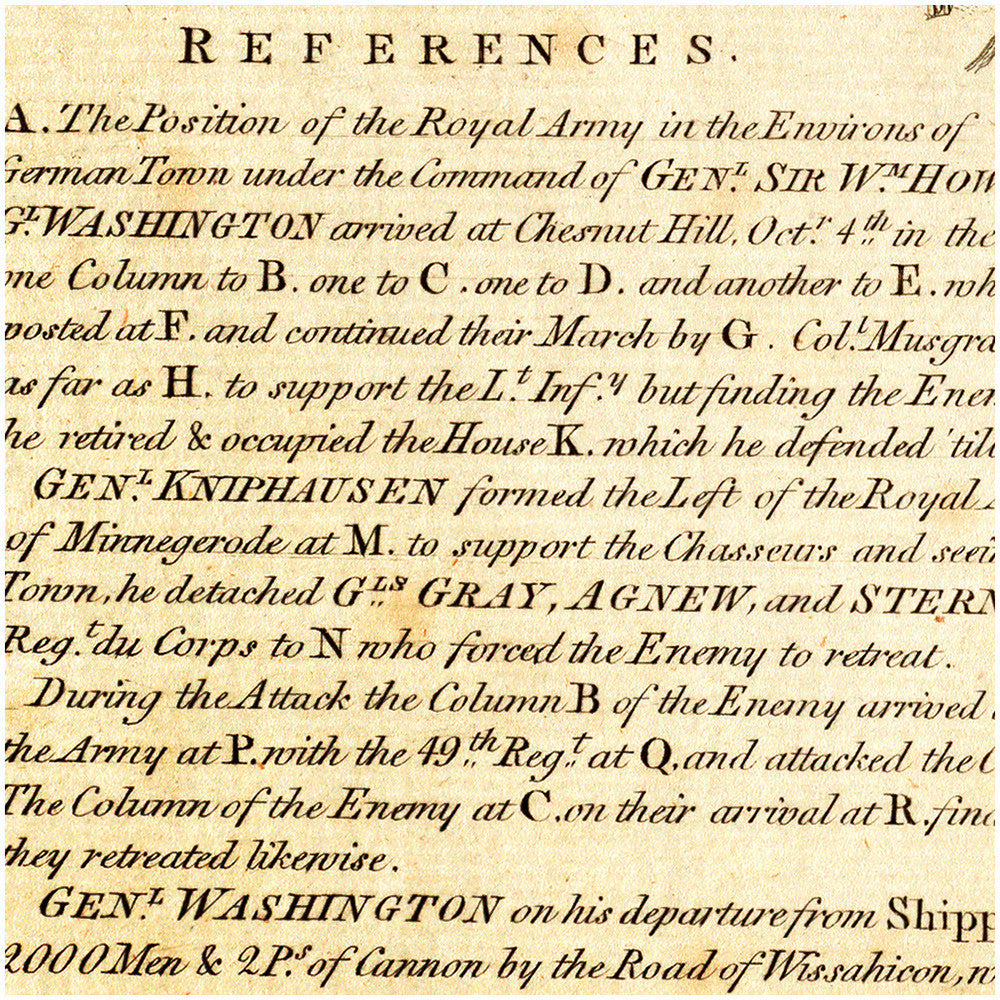 REFERENCES.
A. The Position of the Royal Army in the Environs of
German Town under the Command of GEN.L SIR W.M HOW
G.L WASHINGTON arrived at Chesnut Hill, Oct.r 4.th in the
one Column to B. one to C. one to D. and another to E. wh
posted at F. and continued their March by G. Col.l Musgra
as far as H. to support the L.t Inf.y but finding the Ene
he retired & occupied the House K. which he defended 'till
GEN.L KNIPHAUSEN formed the Left of the Royal A
of Minnegerode at M. to support the Chasseurs and seein
Town, he detached G.LS GRAY, AGNEW, and STERN
Reg.t du Corps to N who forced the Enemy to retreat.
During the Attack the Column B of the Enemy arrived
the Army at P. with the 49.th Reg.t at Q, and attacked the C
The Column of the Enemy at C. on their arrival at R. find
they retreated likewise.
GEN.L WASHINGTON on his departure from Shipp
2000 Men & 2 P.s of Cannon by the Road of Wissahicon, w